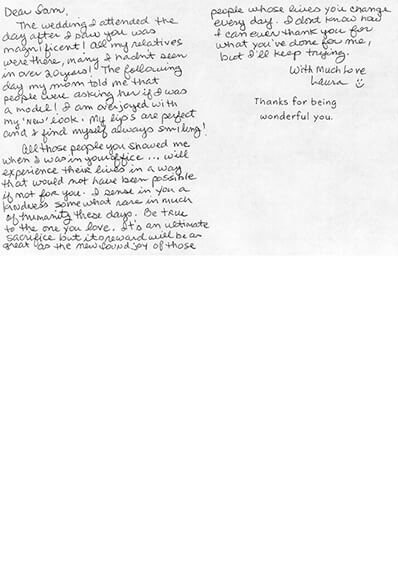 Dear Sam,
The wedding I attended the
day after I saw you was
magnificent! All my relatives
were there, many I hadn't seen
in over 20 years! The following
day my mom told me that
people were asking her if I was
a model! I am overjoyed with
my "new" look. My lips are perfect
and I find myself always smiling!
All those people you showed me
when I was in your office... will
experience their lives in a way
that would not have been possible
if not for you. I sense in you a
kindness somewhat rare in much
of humanity these days. Be true
to the one you love. It's an ultimate
sacrifice but its reward will be as
great as the new found joy of those
people whose lives you change
every day. I don't know how
I can ever thank you for
what you've done for me,
but I'll keep trying.
With Much Love
Laura
Thanks for being
wonderful you.